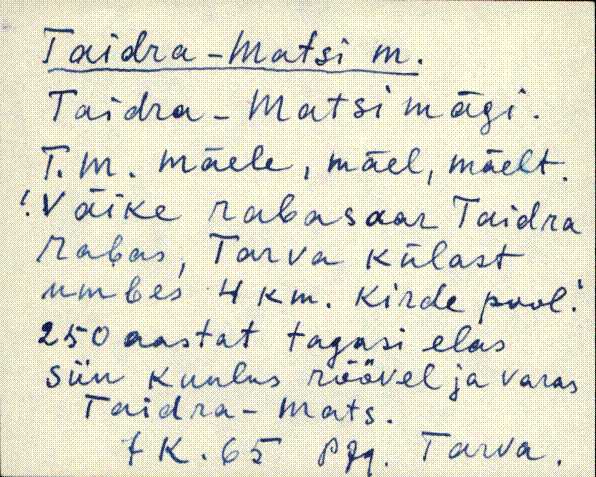 Taidra-Matsi m.
Taidra-Matsi mägi.
T. m. mäele, mäel, mäelt.
! Väike rabasaar Taidra
rabas, Tarva külast
umbes 4 km. kirde pool!
250 aastat tagasi elas
siin kuulus röövel ja varas
Taidra-Mats.
K. 65 Tarva.